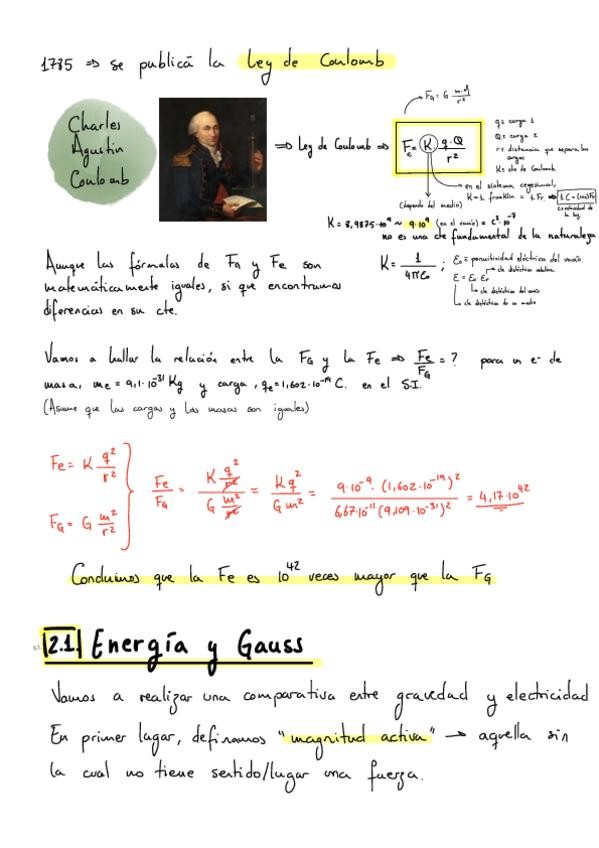 1785 ⇒ se publicā la Ley de Coulomb
Charles
Agustin
Coulomb
⇒ Ley de Coulomb ⇒
Fe = K q·Q / r²
F_G = G m·M / r²
q = carga 1
Q = carga 2
r = distancia que separa las cargas
K = cte de Coulomb
en el sistema cegesimal,
K = 1
(depende del medio)
K = 8,9875·10⁹ ~ 9·10⁹ (en el vacío) = c²·10⁻⁷
no es una cte fundamental de la naturaleza
K = 1 / 4πε₀ ; ε₀ = permitividad eléctrica del vacío.
ε = ε₀·εr
cte dieléctrica relativa
cte dieléctrica del vacío
cte dieléctrica de un medio
Aunque las fórmulas de F_G y Fe son
matemáticamente iguales, si que encontramos
diferencias en su cte.
Vamos a hallar la relación entre la F_G y la Fe ⇒ Fe/F_G = ? para un e⁻ de
masa, me = 9,1·10⁻³¹ Kg y carga, qe = 1,602·10⁻¹⁹ C. en el S.I.
(Asume que las cargas y las masas son iguales)
Fe = K q²/r²
F_G = G m²/r²
Fe/F_G = (K q²/r²) / (G m²/r²) = K q² / G m² = 9·10⁻⁹ · (1,602·10⁻¹⁹)² / 6,67·10⁻¹¹ (9,109·10⁻³¹)² = 4,17·10⁴²
Concluimos que la Fe es 10⁴² veces mayor que la F_G
2.1. Energía y Gauss
Vamos a realizar una comparativa entre gravedad y electricidad
En primer lugar, definamos "magnitud activa" → aquella sin
la cual no tiene sentido/lugar una fuerza.